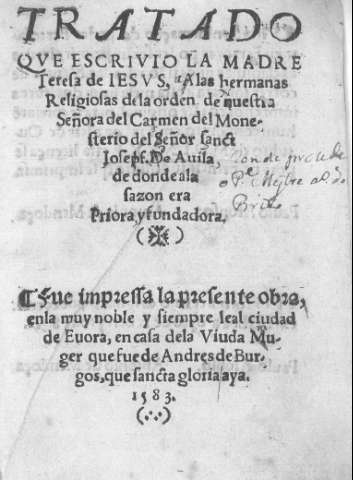 TRATADO
QVE ESCRIVIO LA MADRE
Teresa de IESVS, A las hermanas
Religiosas de la orden de nuestra
Señora del Carmen del Mone-
sterio del Señor sanct
Joseph, De Auila,
de donde a la
sazon era
Priora, y fundadora.
¶ Fue impressa la presente obra,
en la muy noble y siempre leal ciudad
de Euora, en casa de la Viuda Mu-
ger que fue de Andres de Bur-
gos, que sancta gloria aya.
1583.